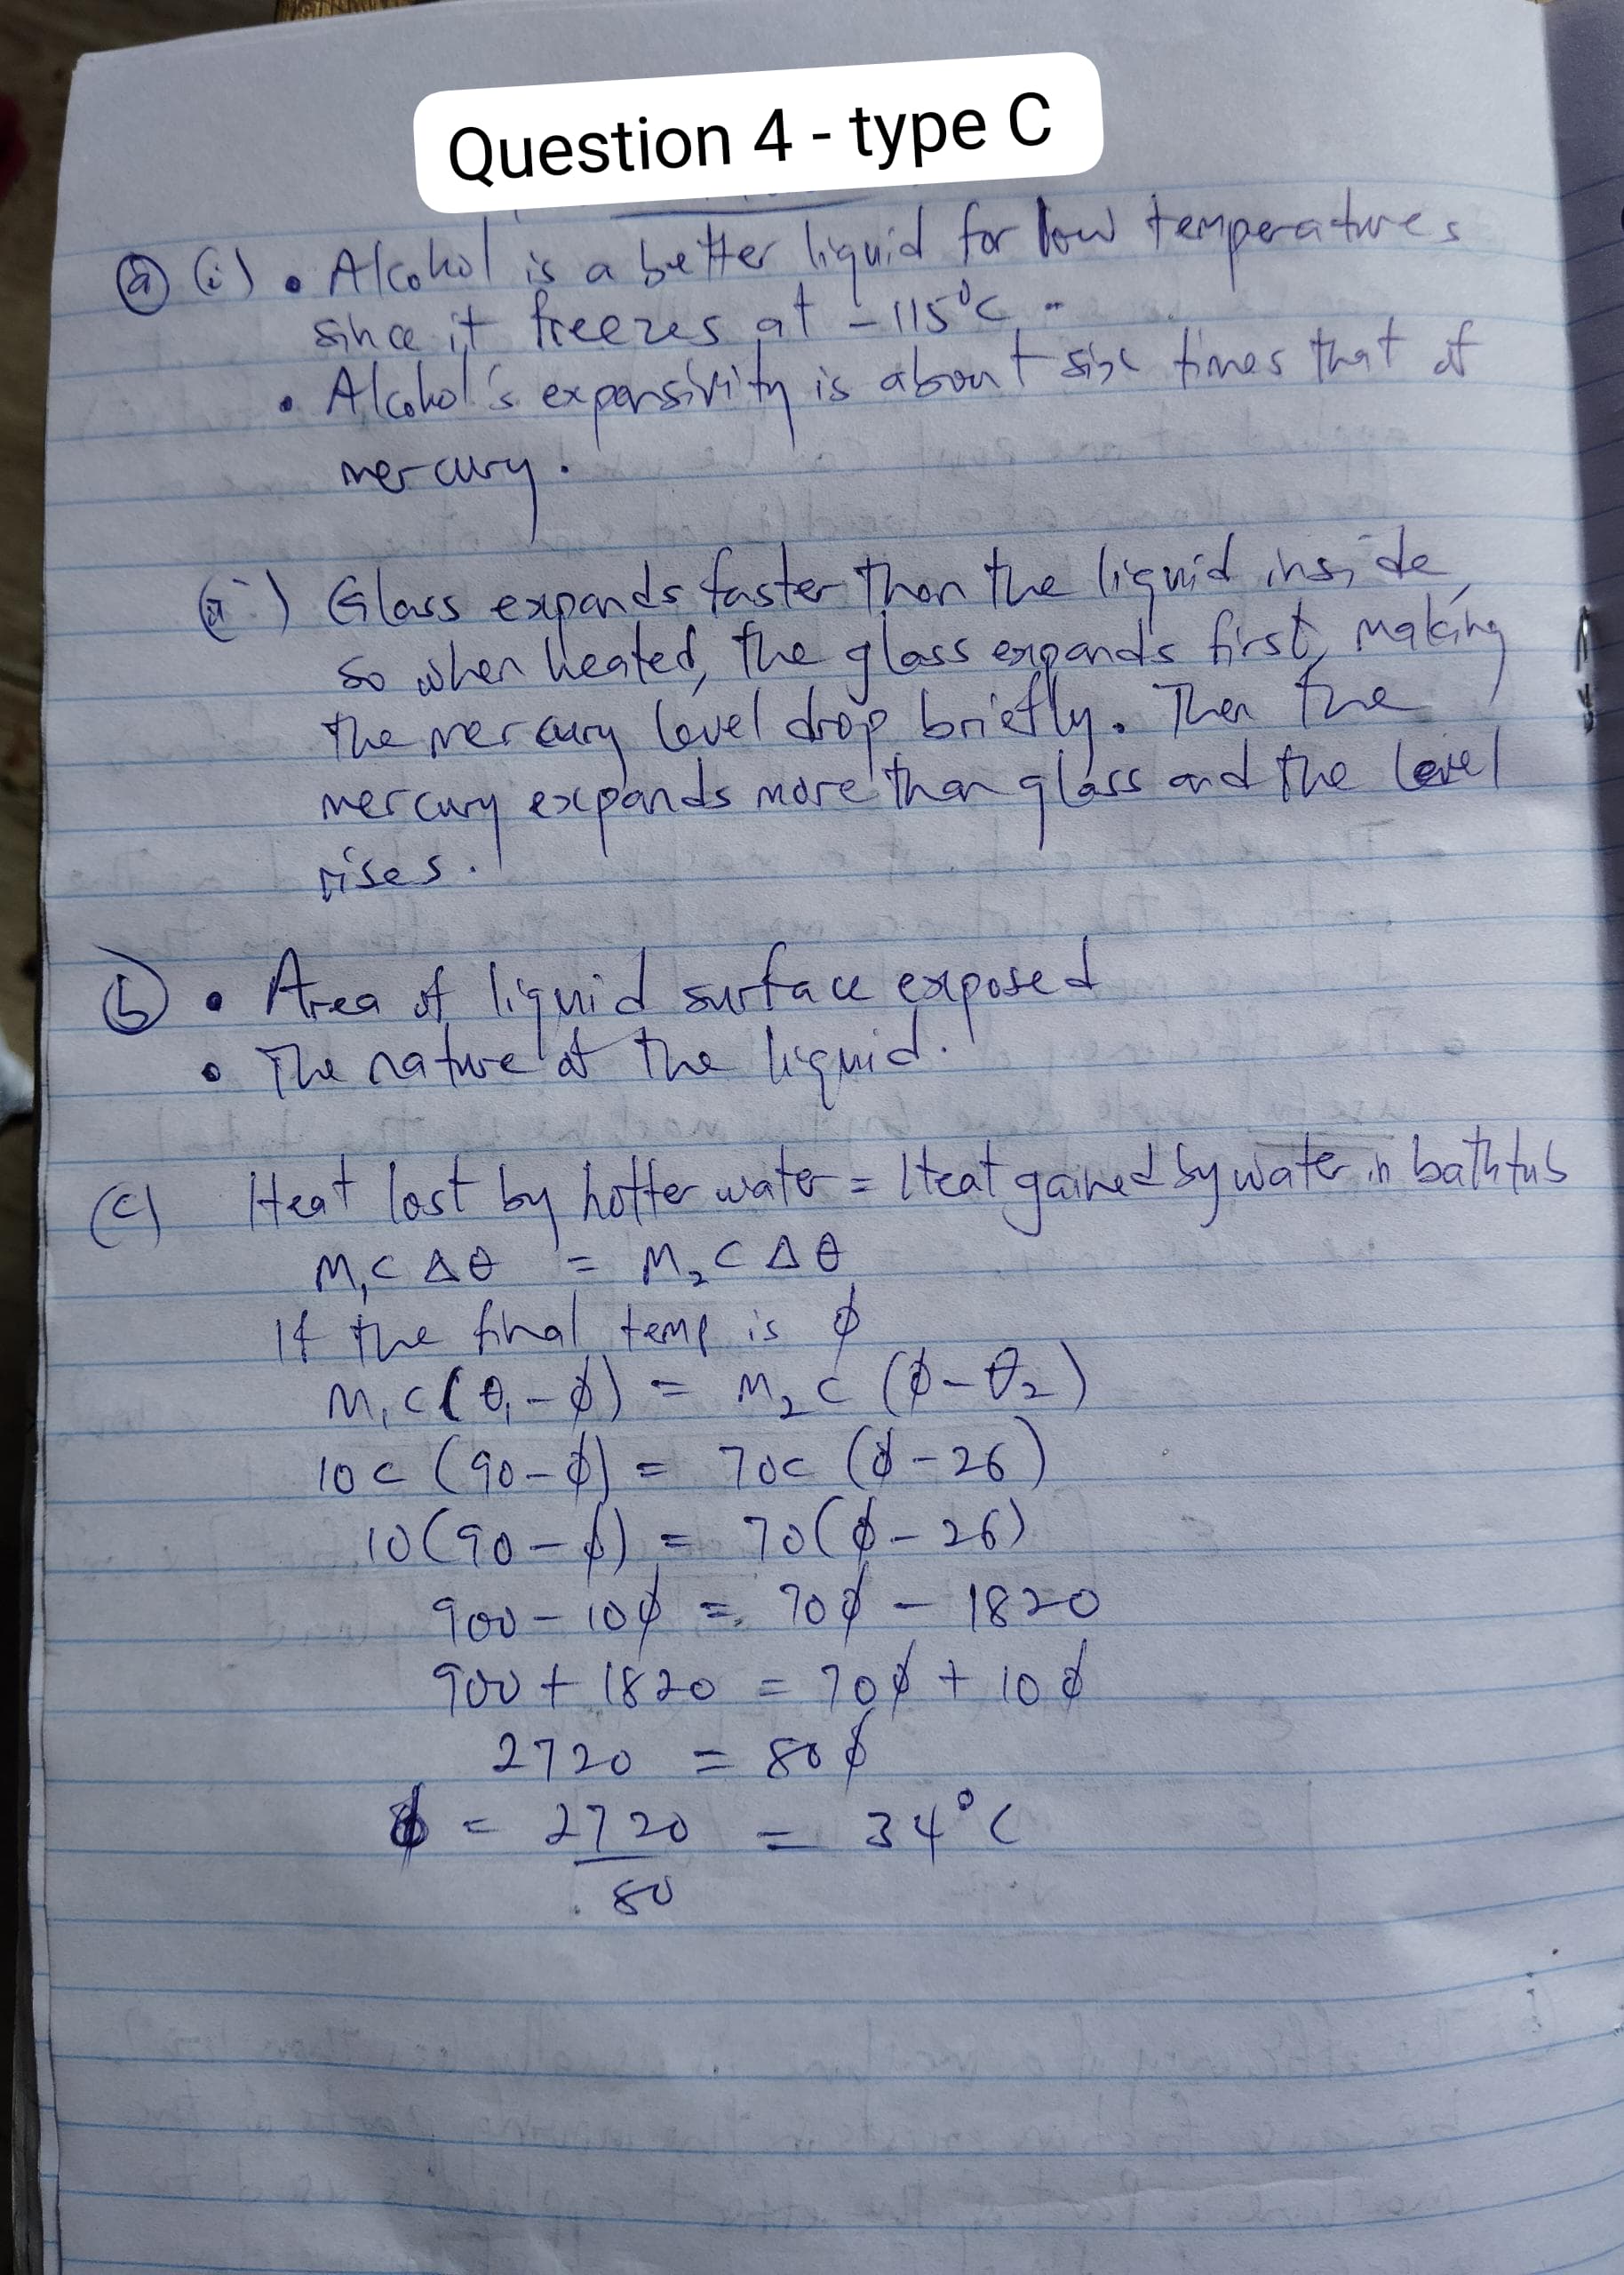 Question 4 - type C
(a) (i) • Alcohol is a better liquid for low temperatures
since it freezes at -115°C.
• Alcohol's expansivity is about six times that of
mercury.
(ii) Glass expands faster than the liquid inside,
so when heated, the glass expands first, making
the mercury level drop briefly. Then the
mercury expands more than glass and the level
rises.
(b) • Area of liquid surface exposed
• The nature of the liquid.
(c) Heat lost by hotter water = Heat gained by water in bathtub
M₁C Δθ = M₂C Δθ
If the final temp is ϕ
M₁C(θ₁-ϕ) = M₂C (ϕ-θ₂)
10C (90-ϕ) = 70C (ϕ-26)
10(90-ϕ) = 70(ϕ-26)
900-10ϕ = 70ϕ - 1820
900 + 1820 = 70ϕ + 10ϕ
2720 = 80ϕ
ϕ = 2720 = 34°C
80